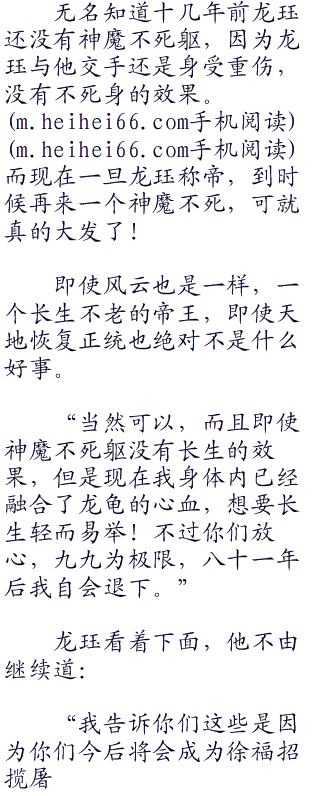 无名知道十几年前龙珏
还没有神魔不死躯，因为龙
珏与他交手还是身受重伤，
没有不死身的效果。
(m.heihei66.com手机阅读)
(m.heihei66.com手机阅读)
而现在一旦龙珏称帝，到时
候再来一个神魔不死，可就
真的大发了！
即使风云也是一样，一
个长生不老的帝王，即使天
地恢复正统也绝对不是什么
好事。
“当然可以，而且即使
神魔不死躯没有长生的效
果，但是现在我身体内已经
融合了龙龟的心血，想要长
生轻而易举！不过你们放
心，九九为极限，八十一年
后我自会退下。”
龙珏看着下面，他不由
继续道：
“我告诉你们这些是因
为你们今后将会成为徐福招
揽屠